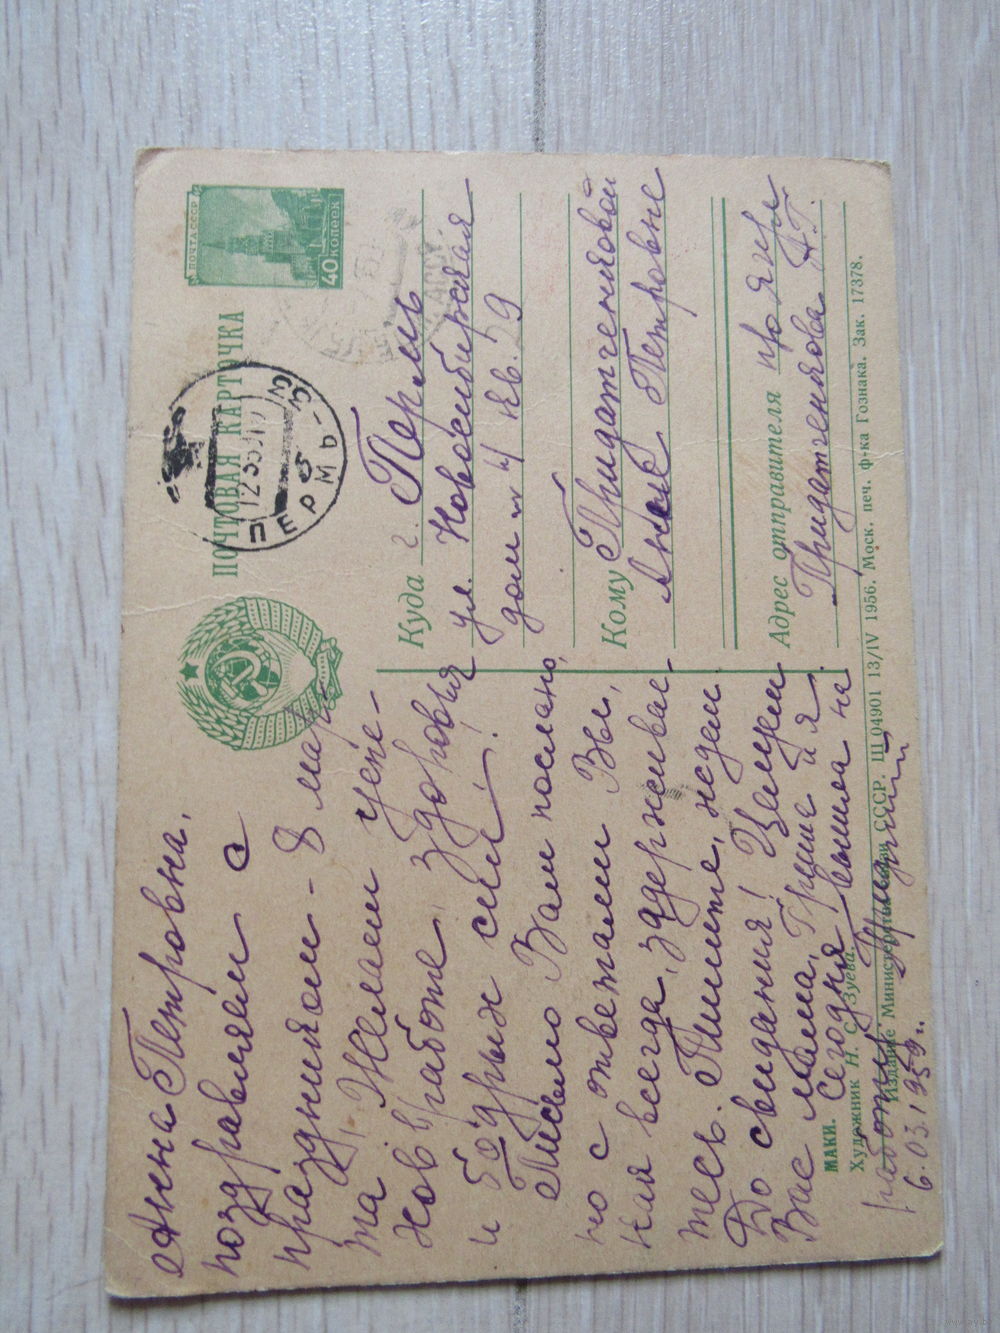 ПОЧТОВАЯ КАРТОЧКА
ПОЧТА СССР
40 КОПЕЕК
ПЕРМЬ
Анна Петровна,
поздравляем с
праздником - 8 мар
та. Желаем успе-
хов в работе, здоровья
и бодрых сил!
Письмо Вам послано,
но с ответами Вы,
как всегда, задерживае-
тесь. Пишите, ждем.
До свидания! Целуем
Вас мама, Гриша и я.
Сегодня вышла на
работу.
6.03.1959г.
Куда г. Пермь
ул. Новосибирская
дом № 4 кв. 59
Кому Придатченковой
Анне Петровне
Адрес отправителя
Придатченкова
МАКИ.
Художник Н. С. Зуева.
Издание Министерства связи СССР. Щ 04901 13/IV 1956. Моск. печ. ф-ка Гознака. Зак. 17378.